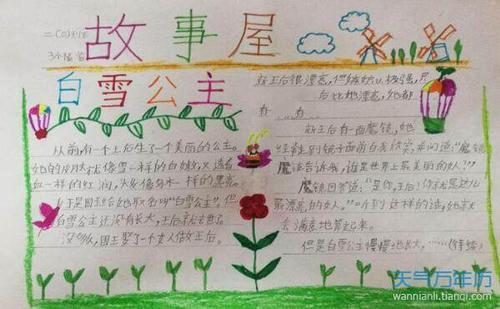 故事屋
白雪公主
从前,有一个王后生了一个美丽的公主。
她的皮肤就像雪一样的白嫩,又透着
血一样的红润,头发像乌木一样的黑亮。
于是国王给她取名叫“白雪公主”,但
白雪公主还没有长大,王后就去世了
没多久,国王娶了一个女人做王后。
新王后很漂亮,但
后比她漂亮,她都
新王后有一面魔镜,她
经常到镜子面前自我欣赏,并问道:“魔
魔法告诉我,谁是世界上最美丽的女人?”
魔镜回答道:“是你,王后!你就是这儿
最漂亮的女人。”听到这样的话,她就
去满意地笑起来。
但是白雪公主慢慢地长大,……(待续)
天气万年历
wannianli.tianqi.com